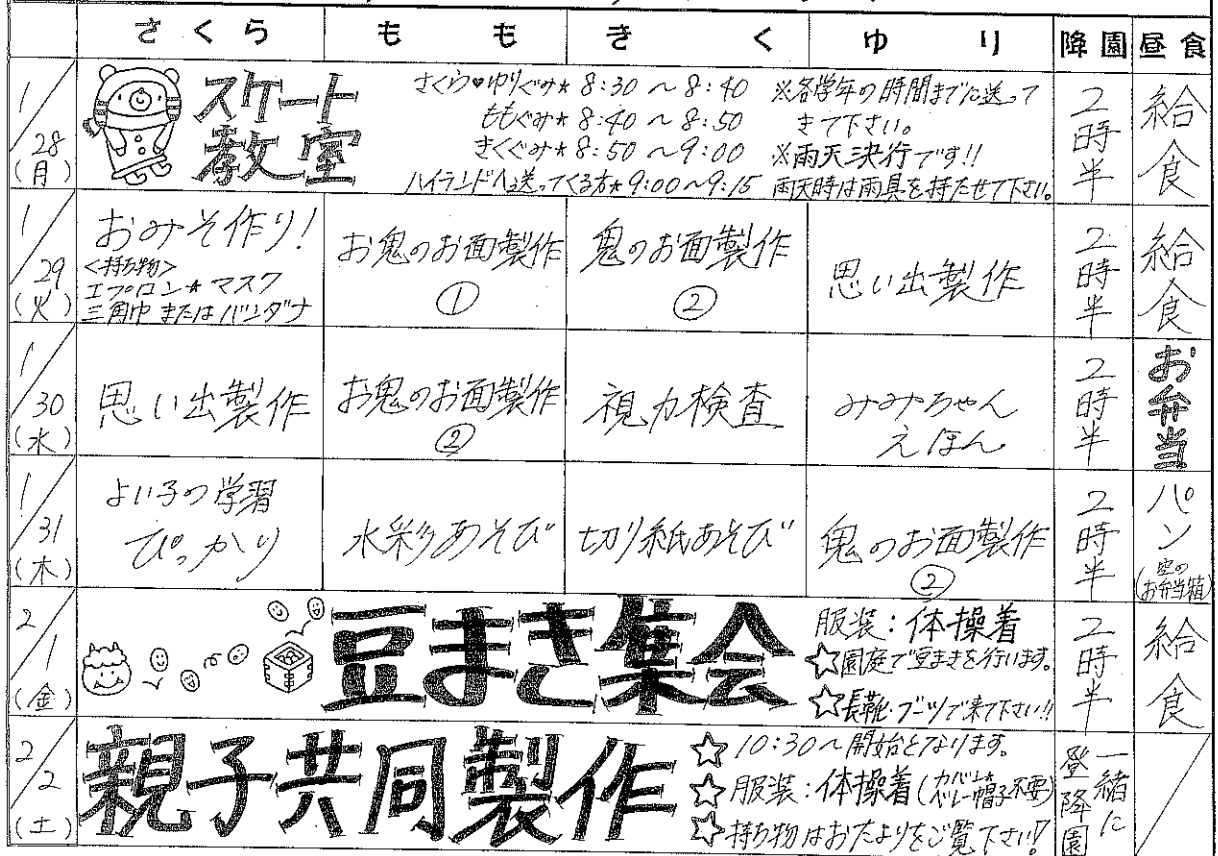 さくら もも きく ゆり 降園 昼食
1/28(月)
スケート教室
さくら♥ゆりぐみ★8:30～8:40
ももぐみ★8:40～8:50
きくぐみ★8:50～9:00
ハイランドへ送ってくる方★9:00～9:15
※各学年の時間までに送って
きて下さい。
※雨天決行です!!
雨天時は雨具を持たせて下さい。
2時半
給食
1/29(火)
おみそ作り!
<持ち物>
エプロン★マスク
三角巾 または バンダナ
お鬼のお面製作
①
鬼のお面製作
②
思い出製作
2時半
給食
1/30(水)
思い出製作
お鬼のお面製作
②
視力検査
みみちゃん
えほん
2時半
お弁当
1/31(木)
よい子の学習
ぴっかり
水彩あそび
切り紙あそび
鬼のお面製作
②
2時半
パン
(空の
お弁当箱)
2/1(金)
豆まき集会
服装:体操着
☆園庭で豆まきを行います。
☆長靴・ブーツで来て下さい!!
2時半
給食
2/2(土)
親子共同製作
☆10:30～開始となります。
☆服装:体操着(カバン★ベレー帽子不要)
☆持ち物はおたよりをご覧下さい!!
一緒に
登降園